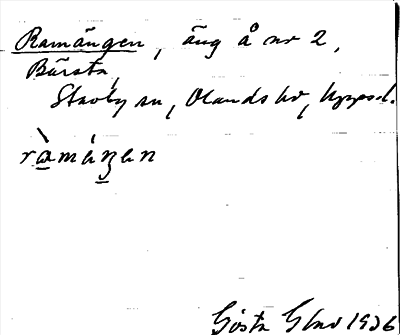 Ramängen, äng å nr 2,
Bärsta,
Stavby sn, Olands hd, Uppsal.
ràmáŋen
Gösta 1936